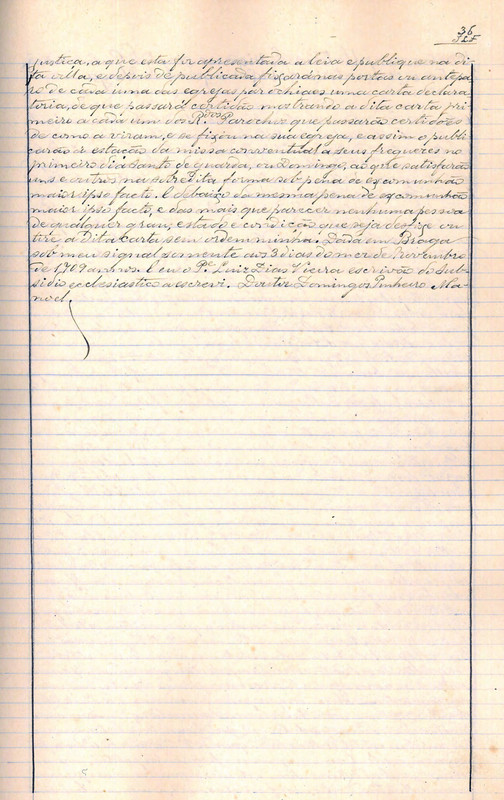 36
justica, a que esta for apresentada a leia e publique na di-
ta villa, e depois de publicada fixará nas portas ou antepa-
ro de cada uma das egrejas parochiaes uma carta declara-
toria, de que passará certidão, mostrando a dita carta pri-
meiro a cada um dos R.dos Parochos que passarão certidões
de como a viram, e se fixou na sua egreja, e assim o publi-
carão á estação da missa conventual a seus freguezes no
primeiro dia Santo de guarda, ou Domingo, ao que satisfarão
uns e outros na sobredita forma sob pena de excomunhão
maior ipso facto. E debaixo da mesma pena de excomunhão
maior ipso facto, e das mais que parecer nenhuma pessoa
de qualquer grau, estado e condição que seja desfixe ou
tire a Dita Carta sem ordem minha. Dada em Braga
sob meu signal somente aos 3 dias do mez de Novembro
de 1769 annos. E eu o P.e Luiz Dias Vieira escrivão do Sub-
sidio ecclesiastico a escrevi. Doutor Domingos Pinheiro Ma-
noel.